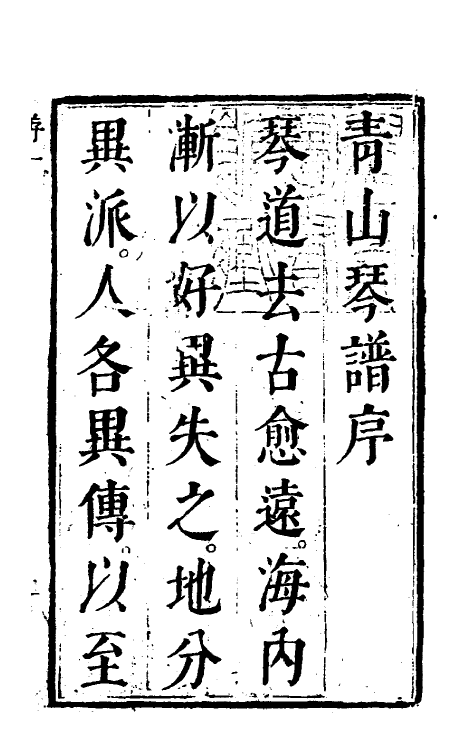 青山琴譜序
琴道去古愈遠。海內
漸以好異失之。地分
異派。人各異傳。以至
序一